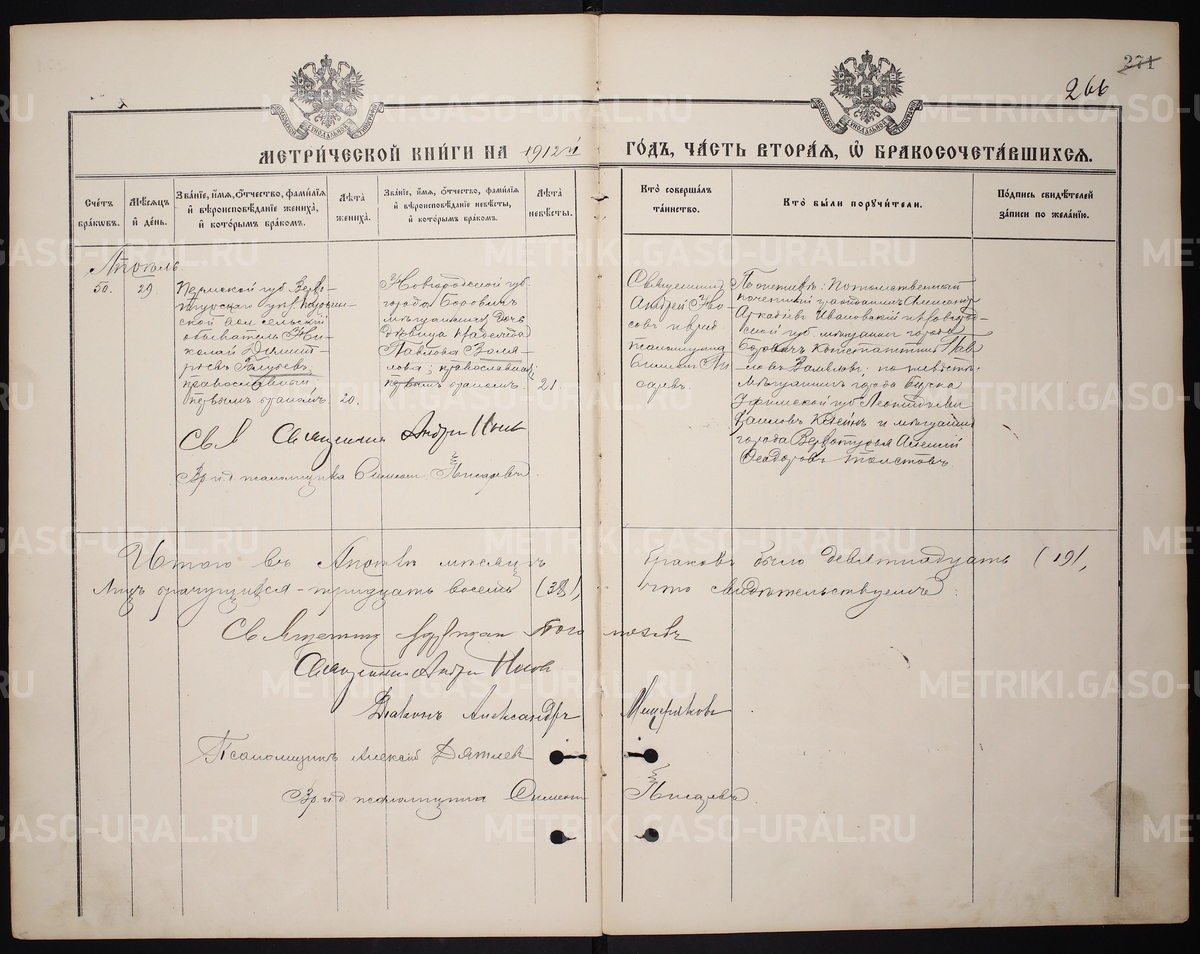 271
266
МЕТРИ́ЧЕСКОЙ КНИ́ГИ НА 1912й ГО́ДЪ, ЧА́СТЬ ВТОРА́Я, Ѽ БРАКОСОЧЕТА́ВШИХСЯ.
Сче́тъ бра́кѡвъ.
Мѣ́сяцъ и҆ де́нь.
Зва́нїе, и҆́мя, ѻ҆́тчество, фами́лїя и҆ вѣроисповѣ́данїе жениха̀, и҆ кото́рымъ бра́комъ.
Лѣ́та жениха̀.
Зва́нїе, и҆́мя, ѻ҆́тчество, фами́лїя и҆ вѣроисповѣ́данїе невѣ́сты, и҆ кото́рымъ бра́комъ.
Лѣ́та невѣ́сты.
Кто̀ соверша́лъ та́инство.
Кто̀ бы́ли поручи́тели.
По́дпись свидѣ́телей за́писи по жела́нїю.
Апрѣль.
50.
29.
Пермской губ. Верхо-
турскаго уѣз.
ской вол. сельскій
обыватель Ни-
колай Димит-
ріевъ Голубевъ,
православный,
первымъ бракомъ
20.
Новгородской губ.
города Боровичъ
мѣщанина дочь
дѣвица
Павлова
православная,
первымъ бракомъ
21
Священникъ
Андрей Но-
совъ и врид.
псаломщика
Симеонъ Пи-
саревъ.
По женихѣ: Потомственный
почетный гражданинъ Александръ
Аркадіевъ Ивановскій и Новгород-
ской губ. мѣщанинъ города
Боровичъ Константинъ Пав-
ловъ по невѣстѣ:
мѣщанинъ города Бирска
Уфимской губ. Леонтій
и мѣщанинъ
города Верхотурья
Ѳеодоровъ Толстовъ.
Священникъ Андрей Носовъ
Вр. и. д. псаломщика Симеонъ Писаревъ.
Итого въ Апрѣлѣ мѣсяцѣ браковъ было девятнадцать (19),
лицъ брачущихся - тридцать восемь (38), что свидѣтельствуемъ:
Священникъ
Священникъ Андрей Носовъ
Діаконъ Александръ Мещеряковъ
Псаломщикъ Алексій Дятлевъ
Вр. и. д. псаломщика Симеонъ Писаревъ
METRIKI.GASO-URAL.RU